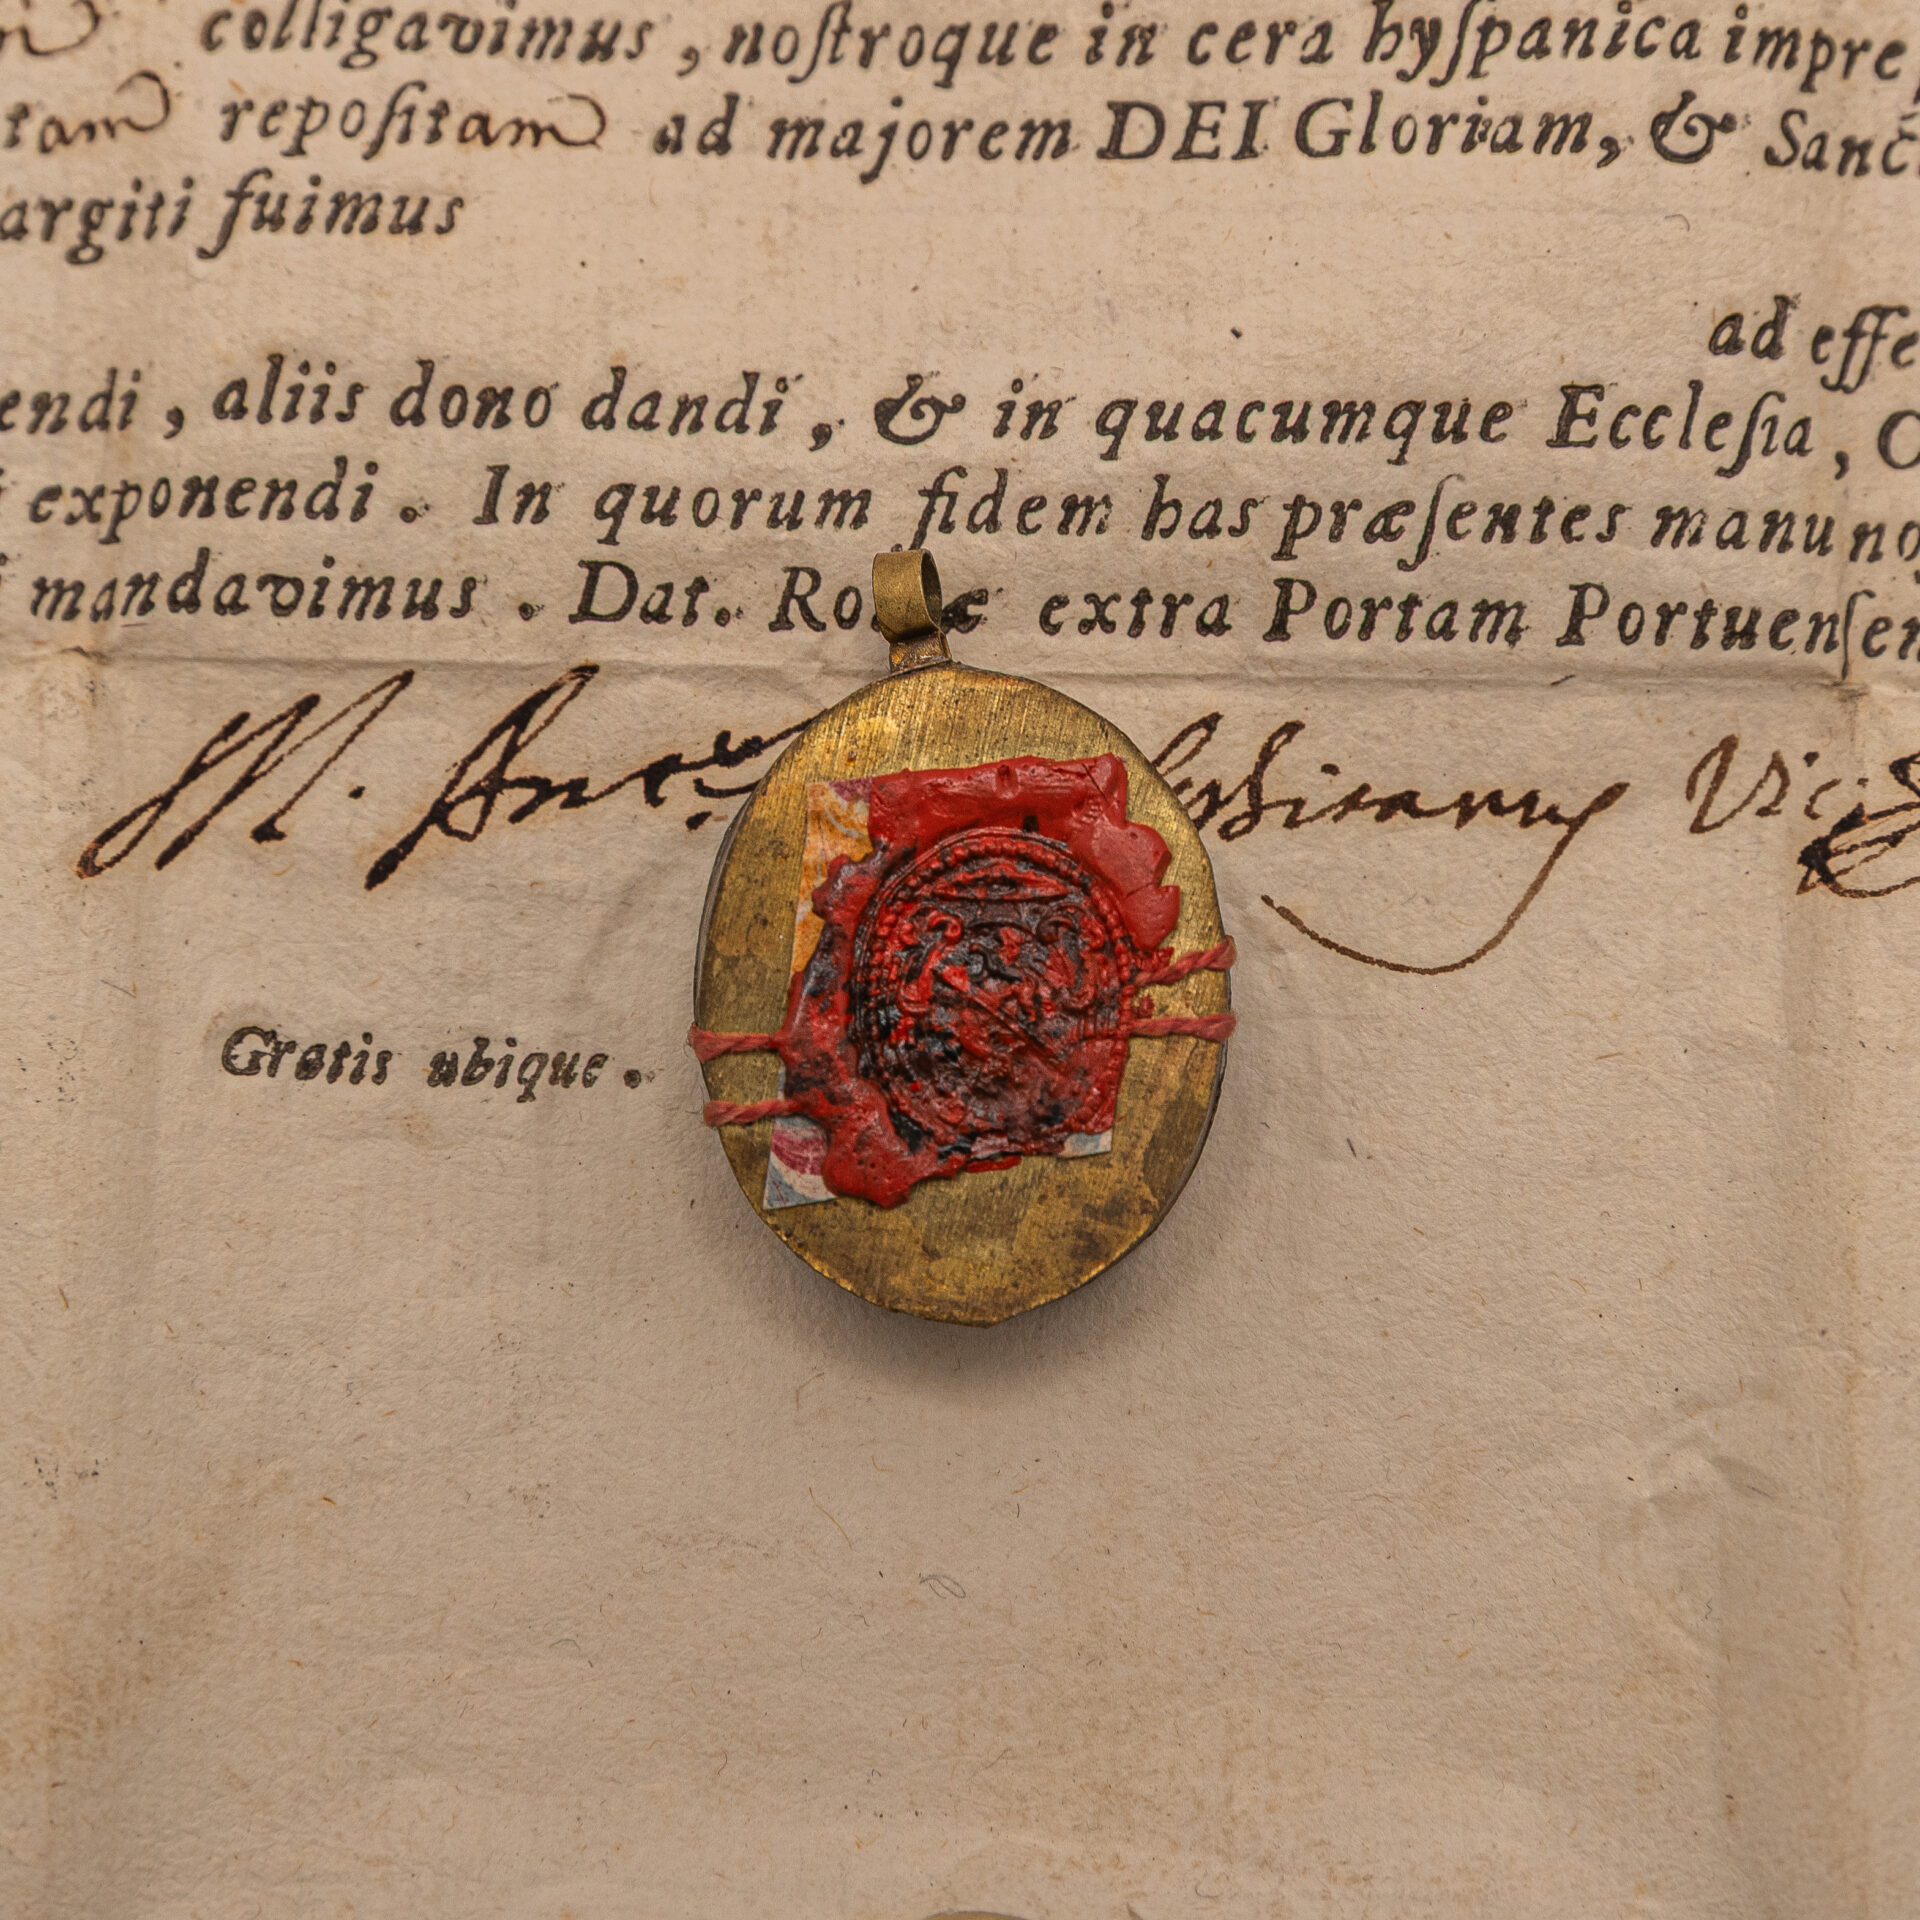 colligavimus, noſtroque in cera hyſpanica impre
tam repoſitam ad majorem DEI Gloriam, & Sanc
argiti fuimus
ad effe
endi, aliis dono dandi, & in quacumque Eccleſia, O
exponendi. In quorum fidem has præſentes manu no
mandavimus. Dat. Ro æ extra Portam Portuenſen
M. Vic
Gratis ubique.